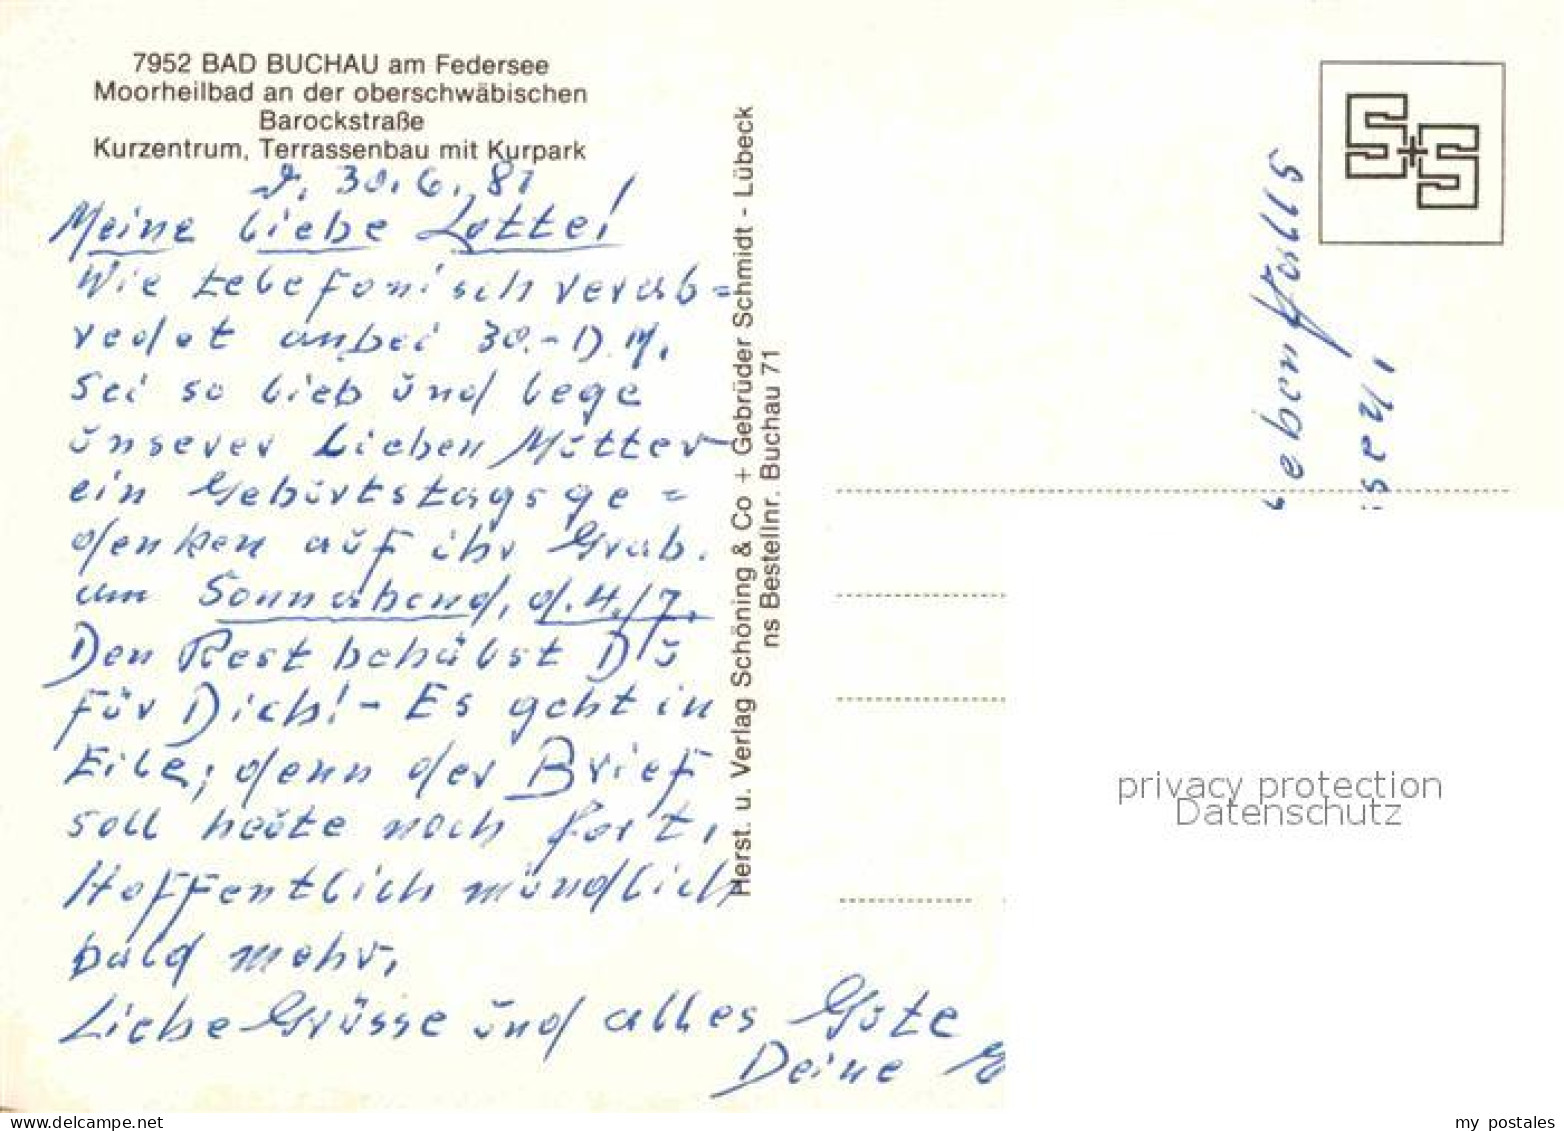 7952 BAD BUCHAU am Federsee
Moorheilbad an der oberschwäbischen
Barockstraße
Kurzentrum, Terrassenbau mit Kurpark
d. 30.6.81
Meine liebe Lotte!
Wie telefonisch verab=
redet anbei 30.- D.M.
Sei so lieb und lege
unserer lieben Mutter
ein Geburtstagsge=
denken auf ihr Grab.
am Sonnabend, d. 4./7.
Den Rest behälst Du
für Dich! - Es geht in
Eile; denn der Brief
soll heute noch fort.
Hoffentlich mündlich
bald mehr.
Liebe Grüsse und alles Gute
Deine
Herst. u. Verlag Schöning & Co + Gebrüder Schmidt - Lübeck
ns Bestellnr. Buchau 71
S+S
ebenfalls
privacy protection
Datenschutz
my postales